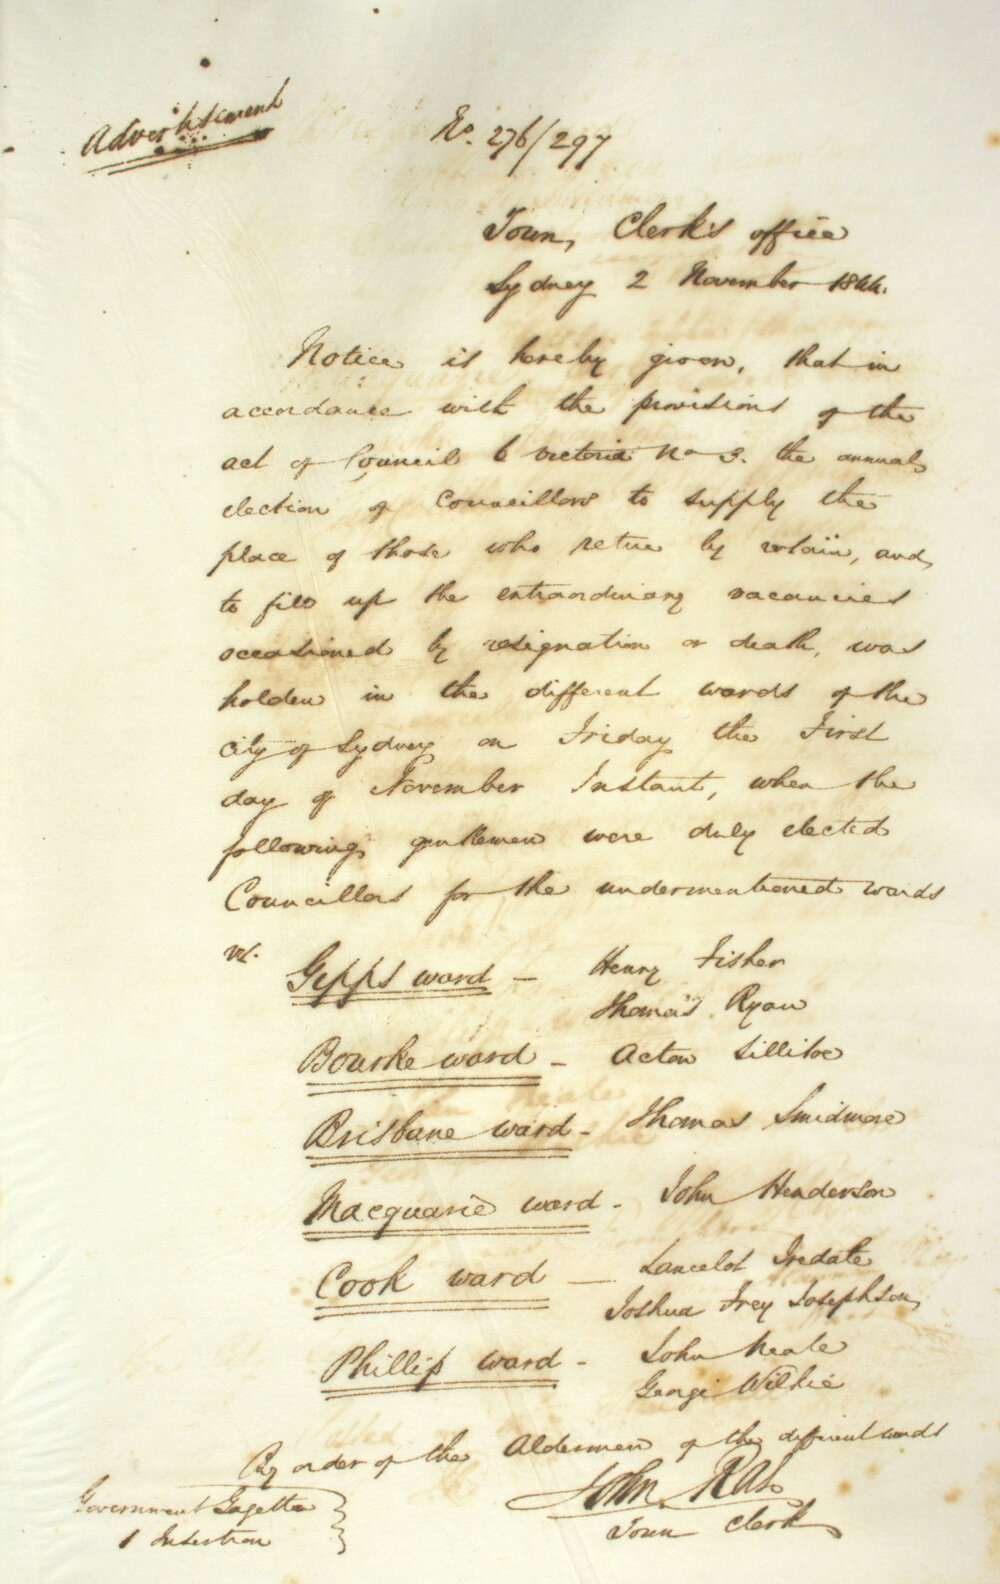 Advertisement
No. 276/297
Town, Clerk's office
Sydney 2 November 1844.
Notice is hereby given, that in
accordance with the provisions of the
act of Council 6 Victoria No 3. the annual
election of Councillors to supply the
place of those who retire by rotain, and
to fill up the extraordinary vacancies
occasioned by resignation or death, was
holden in the different wards of the
city of Sydney on Friday the First
day of November Instant, when the
following gentlemen were duly elected
Councillors for the undermentioned wards
viz.
Gipps ward - Henry Fisher
Thomas Ryan
Bourke ward - Acton Sillitoe
Brisbane ward - Thomas Smidmore
Macquarie ward - John Henderson
Cook ward - Lancelot Iredale
Joshua Frey Josephson
Phillip ward - John Neale
George Wilkie
By order of the Aldermen of the different wards
John Rae
Town Clerk
Government Gazette
1 Insertion